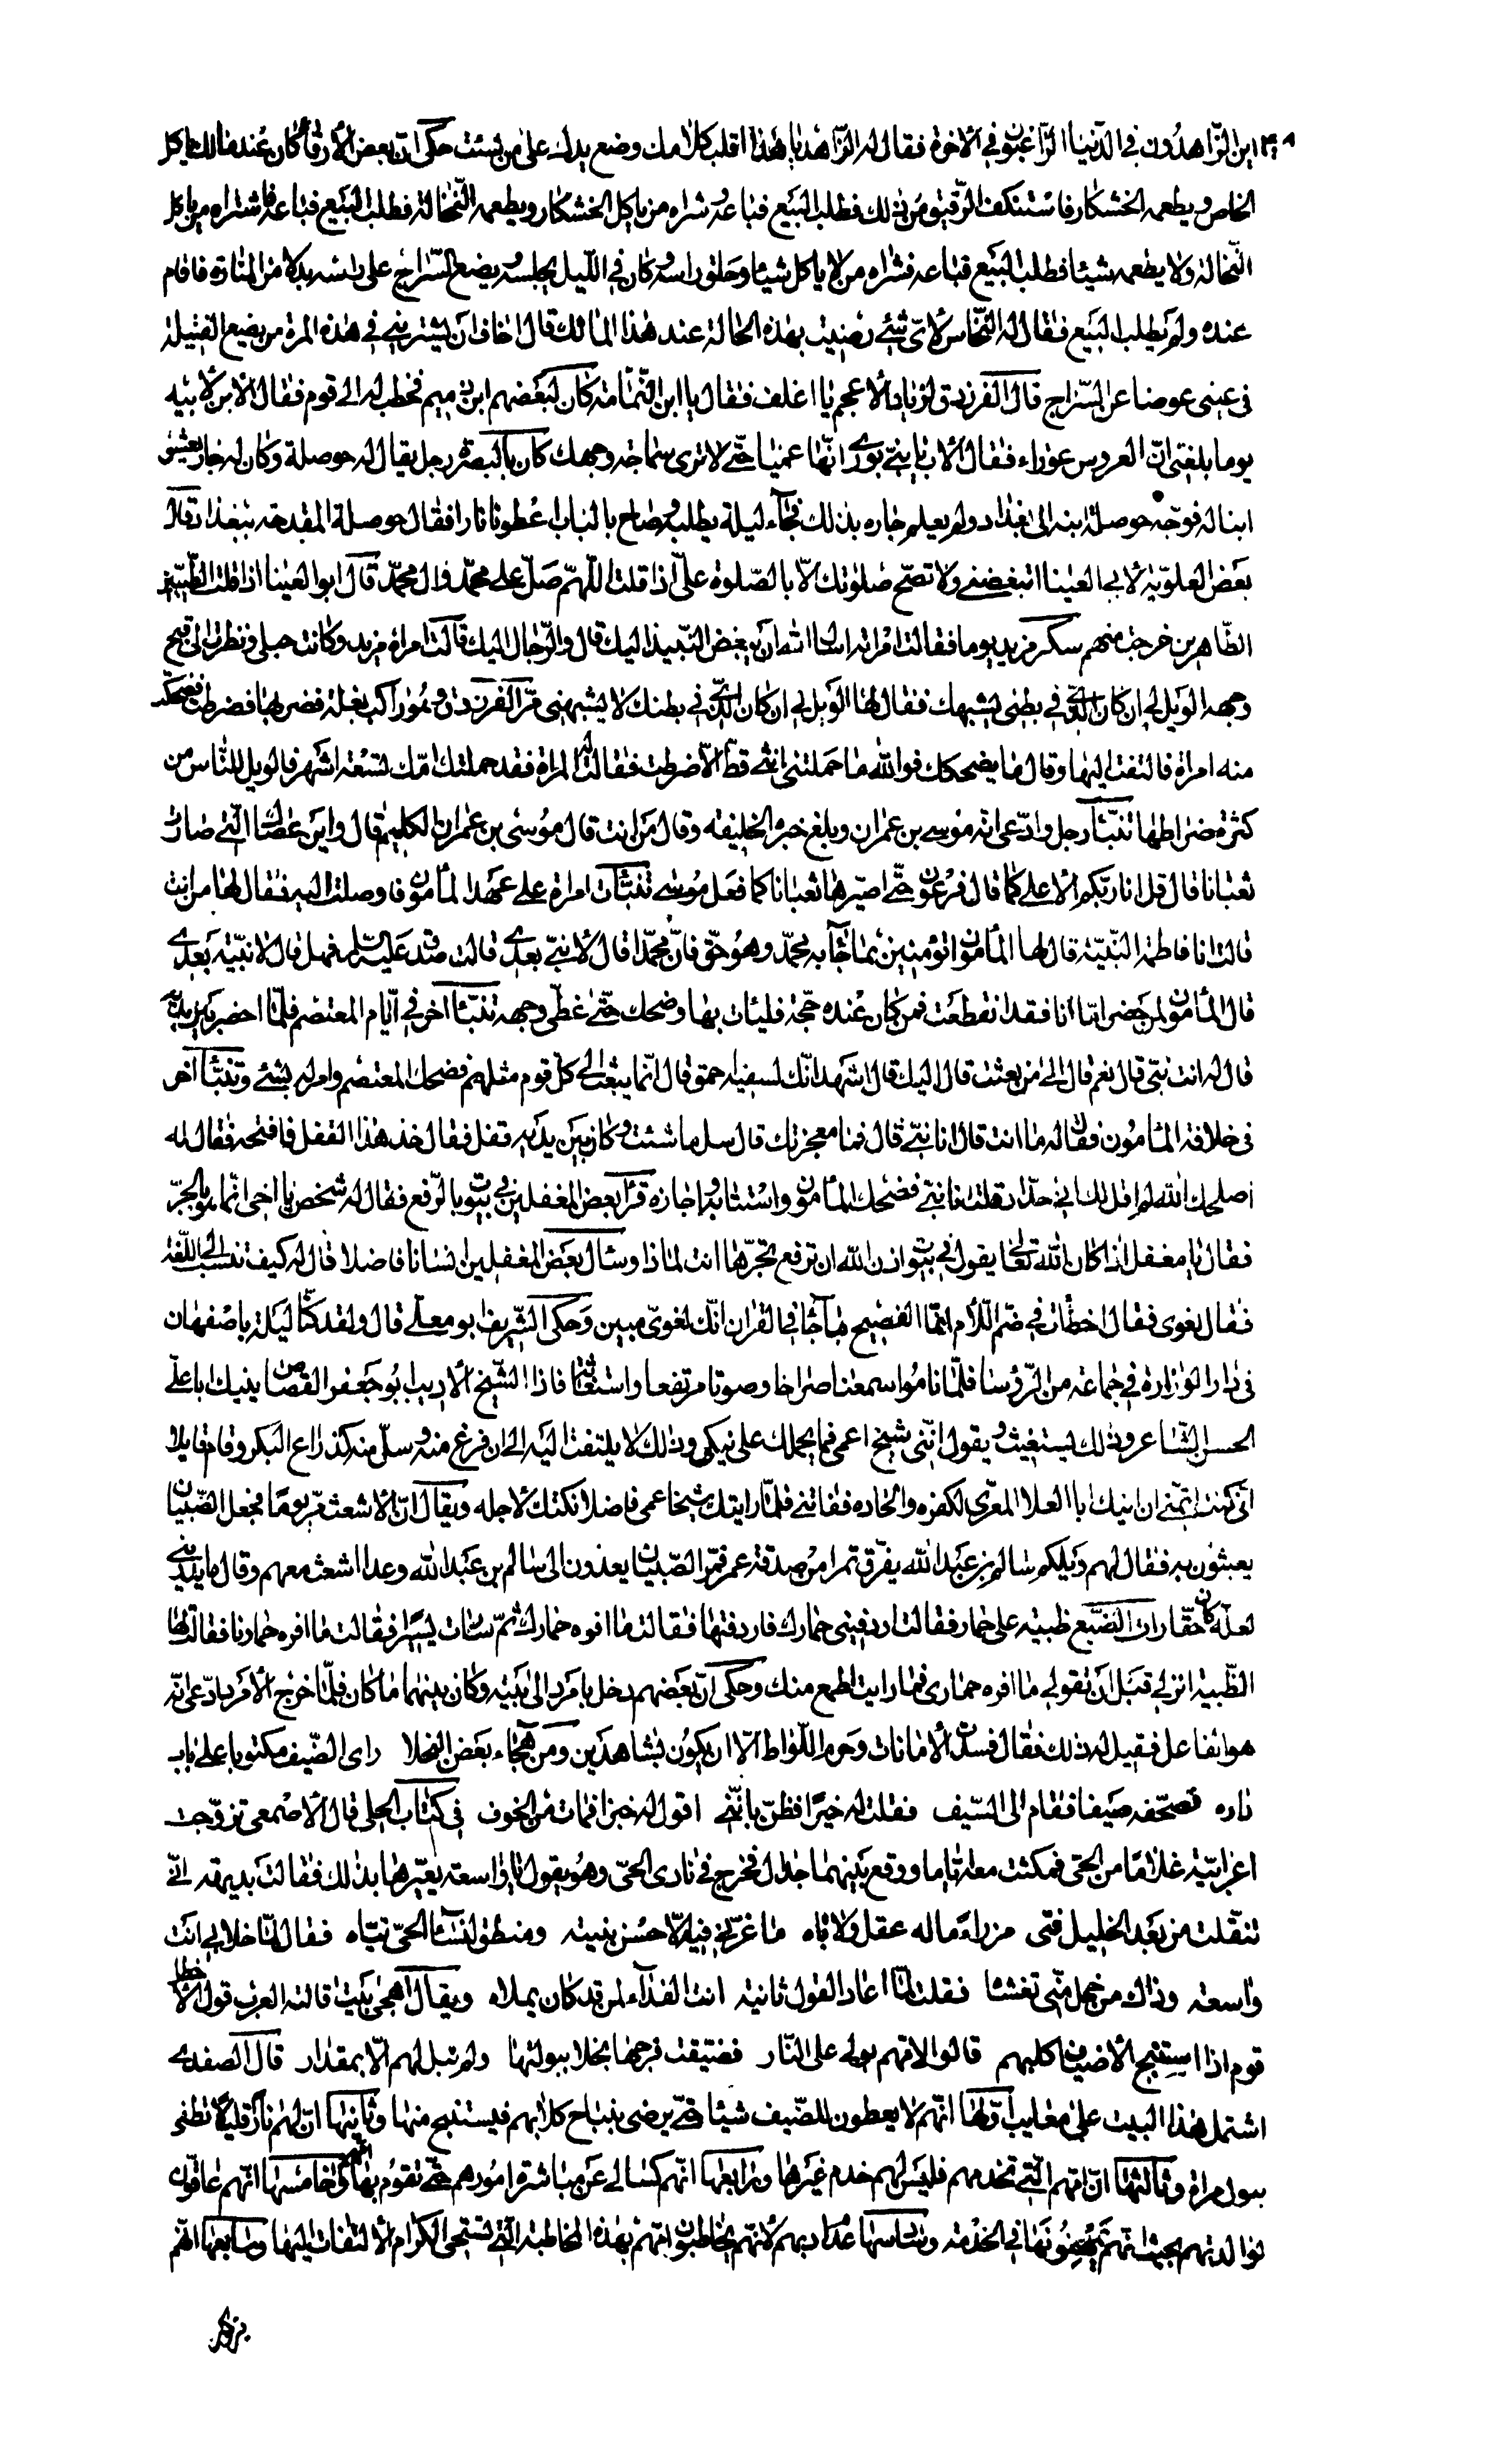 اين الزّاهدون في الدّنيا الرّاغبون في الآخرة فقال له الزّاهد يا هذا اقلب كلامك وضع يدك على من شئت حكى انّ بعض الأرقّاء كان عند مالك يأكل
الخاص ويطعمه الخشكار فاستنكف الرّقيق من ذلك فطلب البيع فباعه وشراه من يأكل الخشكار ويطعمه النّخالة فطلب البيع فباعه فاشتراه من يأكل
النّخالة ولا يطعمه شيئا فطلب البيع فباعه فشراه من لا يأكل شيئا وحلق راسه وكان في اللّيل يجلسه ويضع السّراج على راسه بدلا من المنارة فاقام
عنده ولم يطلب البيع فقال له النّخاس لأيّ شئ رضيت بهذه الحالة عند هذا المالك قال اخاف ان يشتريني في هذه المرة من يضع الفتيلة
في عيني عوضا عن السّراج قال الفرزدق لزياد الأعجم يا اغلف فقال يا ابن النّمّامة كان لبعضهم ابن دميم فخطب له الى قوم فقال الابن لأبيه
يوما بلغني انّ العروس عوراء فقال الأب يا بنيّ بودي انّها عمياء حتّى لا ترى سماجة وجهك كان بالبصرة رجل يقال له حوصلة وكان له جار يعشق
ابنا له فوجّه حوصلة ابنه الى بغداد ولم يعلم جاره بذلك فجآء ليلة يطلبه وصاح بالباب اعطونا نارا فقال حوصلة المقدحة ببغداد قال
بعض العلويّة لأبي العينا اتبغضني ولا تصحّ صلوتك الّا بالصّلوة عليّ اذا قلت اللّهمّ صلّ على محمّد وال محمّد قال ابو العينا اذا قلت الطّيّبين
الطّاهرين خرجت منهم سكر مزيد يوما فقالت امرأته اسال الله ان يبغض النّبيذ اليك قال والدّجال اليك قالت امراة مزيد وكانت حبلى ونظرت الى قبح
وجهه الويل لي ان كان الّذي في بطني يشبهك فقال لها الويل لي ان كان الّذي في بطنك لا يشبهني مرّ الفرزدق وهو راكب بغلة فضربها فضرطت فضحكت
منه امراة فالتفت اليها وقال ما يضحكك فوالله ما حملتني انثى قطّ الّا ضرطت فقالت له المراة فقد حملتك امّك تسعة اشهر فالويل للنّاس من
كثرة ضراطها تنبّأ رجل وادّعى انّه موسى بن عمران وبلغ خبره الخليفة وقال من انت قال موسى بن عمران الكليم قال واين عصاك الّتي صارت
ثعبانا قال قل انا ربّكم الأعلى كما قال فرعون حتّى اصيّرها ثعبانا كما فعل موسى تنبّأت امراة على عهد المأمون فاوصلت اليه فقال لها من انت
قالت انا فاطمة النّبيّة قال لها المأمون اتؤمنين بما جآء به محمّد وهو حقّ فانّ محمّدا قال لا نبيّ بعدي قالت صدق عليه السّلم فهل قال لا نبيّة بعدي
قال المأمون لمن حضر امّا انا فقد انقطعت فمن كان عنده حجّة فليات بها وضحك حتّى غطّى وجهه تنبّأ آخر في ايّام المعتصم فلمّا احضر بين يديه
قال له انت نبيّ قال نعم قال الى من بعثت قال اليك قال اشهد انّك لسفيه احمق قال انّما يبعث الى كلّ قوم مثلهم فضحك المعتصم وامر له بشئ وتنبّأ آخر
في خلافة المأمون فقال له ما انت قال انا نبيّ قال فما معجزتك قال سل ما شئت وكان بين يديه قفل فقال خذ هذا القفل فافتحه فقال له
اصلحك الله لم اقل لك انّي حدّاد قلت انا نبيّ فضحك المأمون واستتابه واجازه قرأ بعض المغفلين في بيوت بالرّفع فقال له شخص يا اخي انّما هو بالجرّ
فقال يا مغفل اذا كان الله تعالى يقول في بيوت اذن الله ان ترفع تجرّها انت لماذا وسأل بعض المغفلين انسانا فاضلا قال له كيف تنسب الى اللّغة
فقال لغوي فقال اخطأت في ضم اللّام انّما الفصيح ما جاء في القران انّك لغويّ مبين وحكى الشّريف ابو معلى قال ولقد كنّا ليلة باصفهان
في دار الوزارة في جماعة من الرّؤسا فلمّا ناموا سمعنا صراخا وصوتا مرتفعا واستغاثة فاذا الشّيخ الأديب ابو جعفر القصاص ينيك ابا علي
الحسن الشّاعر وذلك يستغيث ويقول انّني شيخ اعمى فما يحملك على نيكي وذلك لا يلتفت اليه الى ان فرغ منه وسلّ منه كذراع البكر وقام قايلا
انّي كنت اتمنّى ان انيك ابا العلا المعرّي لكفره والحاده ففاتني فلمّا رايتك شيخا اعمى فاضلا نكتك لأجله ويقال انّ الأشعث مرّ يوما فجعل الصّبيان
يعبثون به فقال لهم ويلكم سالم بن عبد الله يفرّق تمرا من صدقة عمر فمرّ الصّبيان يعدون الى سالم بن عبد الله وعدا اشعث معهم وقال ما يدريني
لعلّه كان حقّا رات الضّبع ظبية على حمار فقالت اردفيني حمارك فاردفتها فقالت ما افره حمارك ثمّ سارت يسيرا فقالت ما افره حمارنا فقالت لها
الظّبية انزلي قبل ان تقولي ما افره حماري فما رايت اطمع منك وحكى انّ بعضهم دخل بامرد الى بيته وكان بينهما ما كان فلمّا خرج الأمرد ادّعى انّه
هو الفاعل فقيل له ذلك فقال فسدت الأمانات وحرم اللّواط الّا ان يكون بشاهدين ومن هجاء بعض البخلا راى الضّيف مكتوبا على باب
داره فصحّفه ضيفا فقام الى السّيف فقلت له خيرا فظنّ بانّني اقول له خبزا فمات من الخوف في كتاب الحلي قال الأصمعي تزوّجت
اعرابيّة غلاما من الحيّ فمكثت معه ايّاما ووقع بينهما جدال فخرج في نادي الحيّ وهو يقول يا واسعة يعيّرها بذلك فقالت بديهة انّي
تنقّلت من بعد الخليل فتى مرزاء ماله عقل ولا باه ما غرّني فيه الّا حسن بنيته ومنطق لنسآء الحيّ تيّاه فقال لمّا خلا بي انت
واسعة وذاك من خجل منّي تغشّا فقلت لمّا اعاد القول ثانية انت الفدآء لمن قد كان يملاه ويقال اهجى بيت قالته العرب قول الأخطل
قوم اذا استنبح الأضياف كلبهم قالوا لامّهم بولي على النّار فضيّقت فرجها بخلا ببولتها ولم تبل لهم الّا بمقدار قال الصفدي
اشتمل هذا البيت على معايب اوّلها انّهم لا يعطون للضّيف شيئا حتّى يرضى بنباح كلابهم فيستنبح منها وثانيها انّ لهم نارا قليلة تطفى
ببول مراة وثالثها انّ امّهم الّتي تخدمهم فليس لهم خدم غيرها ورابعها انّهم كسالى عن مباشرة امورهم حتّى تقوم بها امّهم وخامسها انّهم عاقّون
لوالدتهم بحيث انّهم يمتهنونها في الخدمة وسادسها عدم ادبهم لأنّهم يخاطبون امّهم بهذه المخاطبة الّتي تستحي الكرام الألتفات اليها وسابعها انّهم